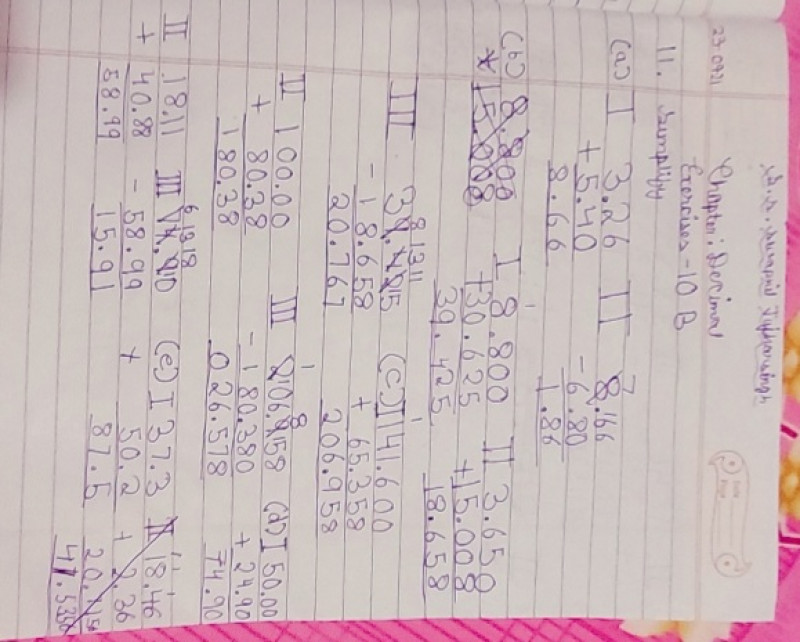 Chapter: Decimal
Exercises - 10 B
11. Simplify
(a) I 3.26 II 8.66
+ 5.40 - 6.80
8.66 1.86
(b) 8.800 I 8.800 II 3.650
* 15.008 + 30.625 + 15.008
39.425 18.658
III 39.425 (c) I 141.600
- 18.658 + 65.358
20.767 206.958
II 100.00 III 206.958 (d) I 50.00
+ 80.38 - 180.380 + 24.90
180.38 026.578 74.90
II 18.11 III 74.90 (e) I 37.3 II 18.46
+ 40.88 - 58.99 + 50.2 + 2.36
58.99 15.91 87.5